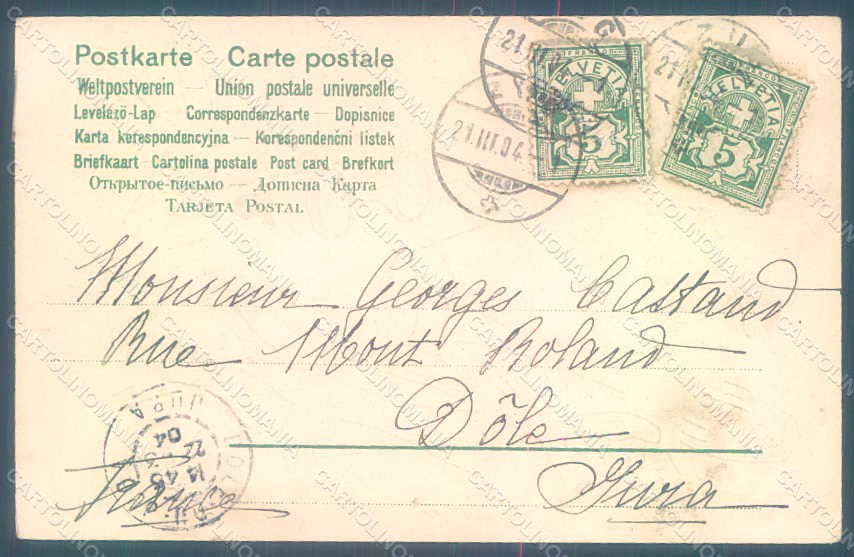 Postkarte Carte postale
Weltpostverein — Union postale universelle
Levelező-Lap Correspondenzkarte — Dopisnice
Karta korespondencyjna — Korespondenční listek
Briefkaart Cartolina postale Post card Brefkort
Открытое-письмо — Дописна Карта
TARJETA POSTAL
21.III.04
21.III.04
21.III
HELVETIA
5
HELVETIA
5
Monsieur Georges Castand
Rue Mont Roland
Dôle
Jura
France
JURA
04
14 45
CARTOLINOMANIA